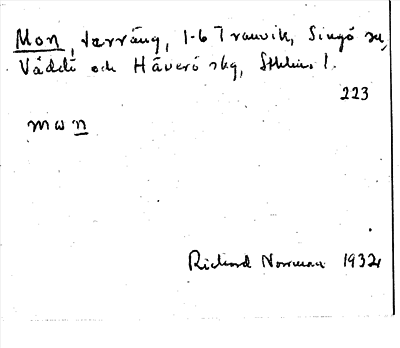 Mon, terräng, 1-6 Tranvik, Singö sn,
Väddö och Häverö skg, Sthlms l.
223
mωn
Richard Norrman 1932